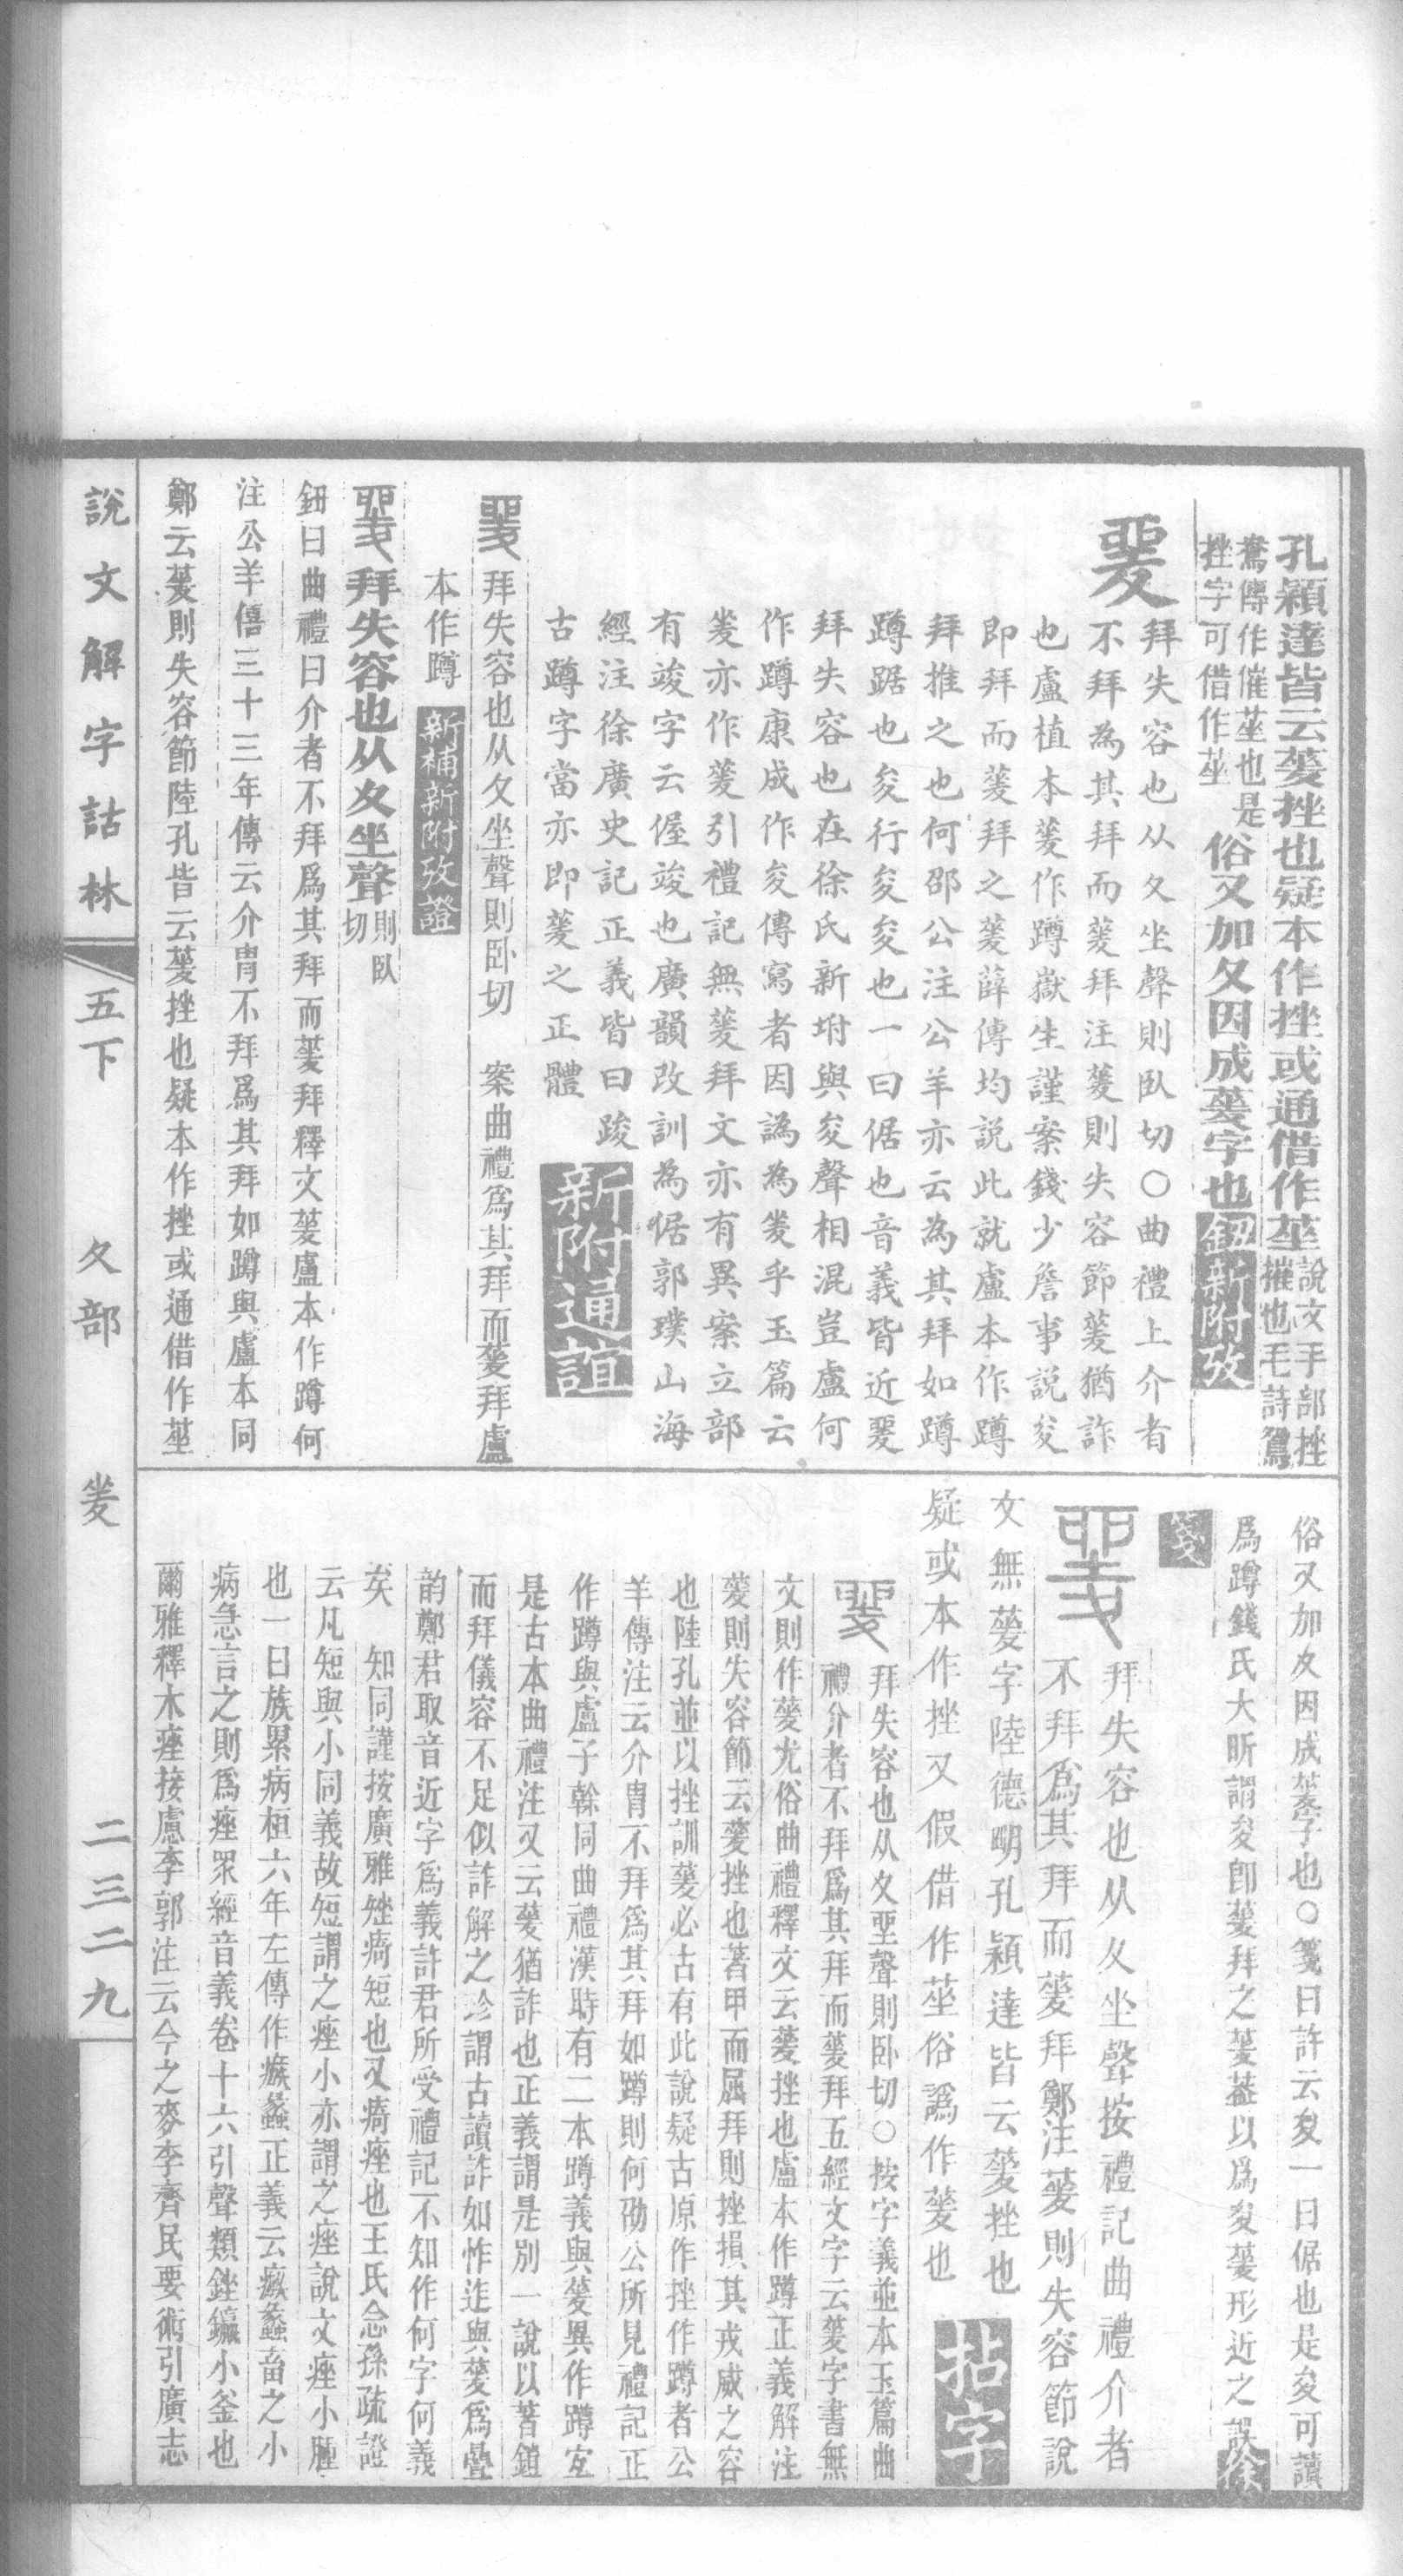 孔穎達皆云夎挫也疑本作挫或通借作莝說文手部挫
摧也毛詩鴛
鴦傳作摧莝也是
挫字可借作莝
俗又加夊因成夎字也鈕新附攷
夎拜失容也从夊坐聲則臥切○曲禮上介者
不拜為其拜而夎拜注夎則失容節夎猶詐
也盧植本夎作蹲嶽生謹案錢少詹事説夋
即拜而夎拜之夎薛傳均説此就盧本作蹲
拜推之也何邵公注公羊亦云為其拜如蹲
蹲踞也夋行夋夋也一曰倨也音義皆近夎
拜失容也在徐氏新坿與夋聲相混豈盧何
作蹲康成作夋傳寫者因譌為夎乎玉篇云
夎亦作夎引禮記無夎拜文亦有異案立部
有竣字云偓竣也廣韻改訓為倨郭璞山海
經注徐廣史記正義皆曰踆
古蹲字當亦即夎之正體新附通誼
夎拜失容也从夊坐聲則卧切 案曲禮爲其拜而夎拜盧
本作蹲新補新附攷證
夎拜失容也从夊坐聲則臥切
鈕曰曲禮曰介者不拜爲其拜而夎拜釋文夎盧本作蹲何
注公羊僖三十三年傳云介冑不拜爲其拜如蹲與盧本同
鄭云夎則失容節陸孔皆云夎挫也疑本作挫或通借作莝
俗又加夊因成夎字也○箋曰許云夋一曰倨也是夋可讀
爲蹲錢氏大昕謂夋卽夎拜之夎葢以爲夋夎形近之誤徐
箋
夎拜失容也从夊坐聲按禮記曲禮介者
不拜爲其拜而夎拜鄭注夎則失容節說
文無夎字陸德明孔穎達皆云夎挫也
疑或本作挫又假借作莝俗譌作夎也拈字
夎拜失容也从夊坐聲則卧切○按字義並本玉篇曲
禮介者不拜爲其拜而夎拜五經文字云夎字書無
文則作夎尤俗曲禮釋文云夎挫也盧本作蹲正義解注
夎則失容節云夎挫也著甲而屈拜則挫損其戎威之容
也陸孔並以挫訓夎必古有此說疑古原作挫作蹲者公
羊傳注云介冑不拜爲其拜如蹲則何劭公所見禮記正
作蹲與盧子榦同曲禮漢時有二本蹲義與夎異作蹲宐
是古本曲禮注又云夎猶詐也正義謂是別一說以著鎧
而拜儀容不足似詐解之珍謂古讀詐如怍迮與夎爲疊
韵鄭君取音近字爲義許君所受禮記不知作何字何義
矣 知同謹按廣雅矬㾨短也又㾨痤也王氏念孫疏證
云凡短與小同義故短謂之痤小亦謂之痤說文痤小腫
也一曰族累病桓六年左傳作瘯蠡正義云瘯蠡畜之小
病急言之則爲痤眾經音義卷十六引聲類銼鑹小釜也
爾雅釋木痤接慮李郭注云今之麥李齊民要術引廣志
說文解字詁林
五下
夊部
夎
二三二九